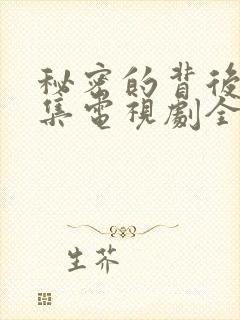 秘密的背後
集電視劇全
生芥